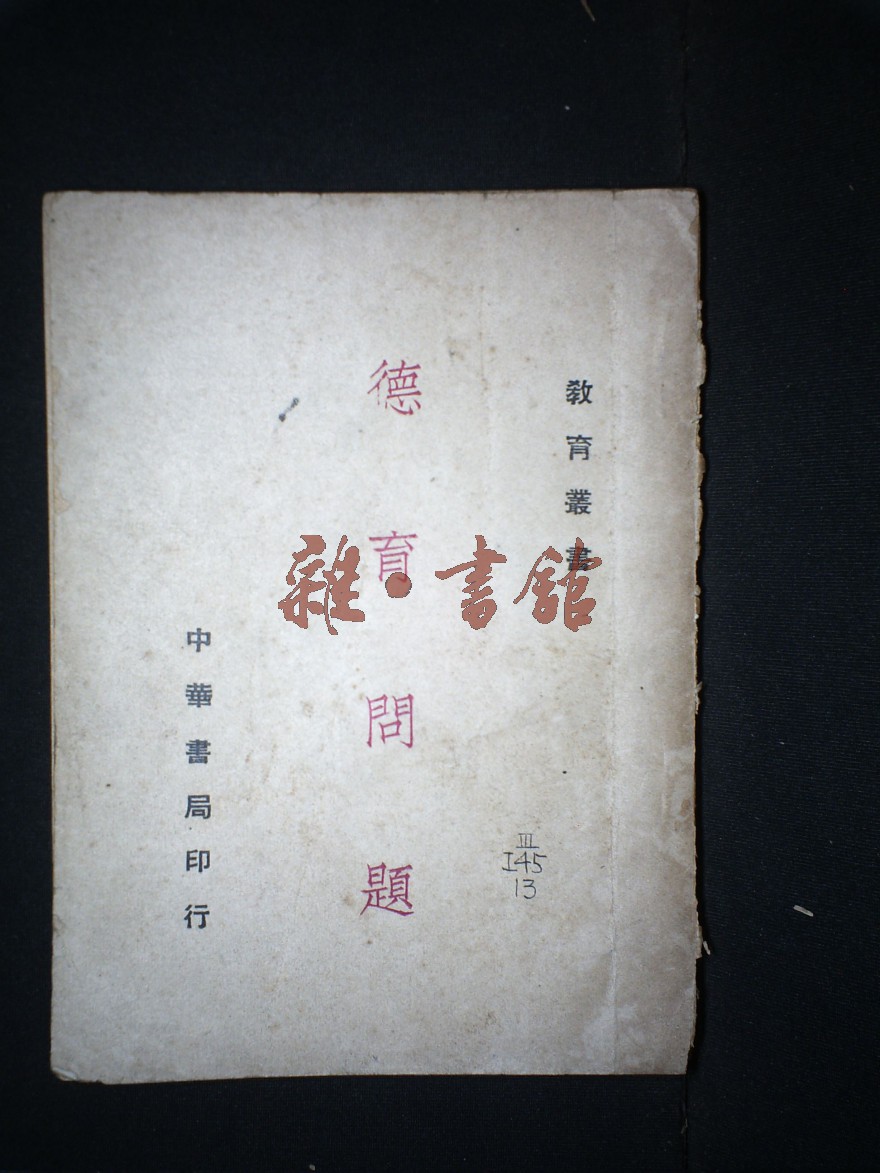 教育叢書
德育問題
中華書局印行
雜·書館
III
I45
13